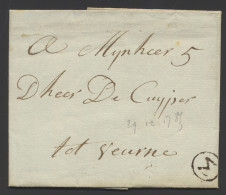 A Mynheer 5
Dheer De Cuyper
29 12 1785
tot veurne